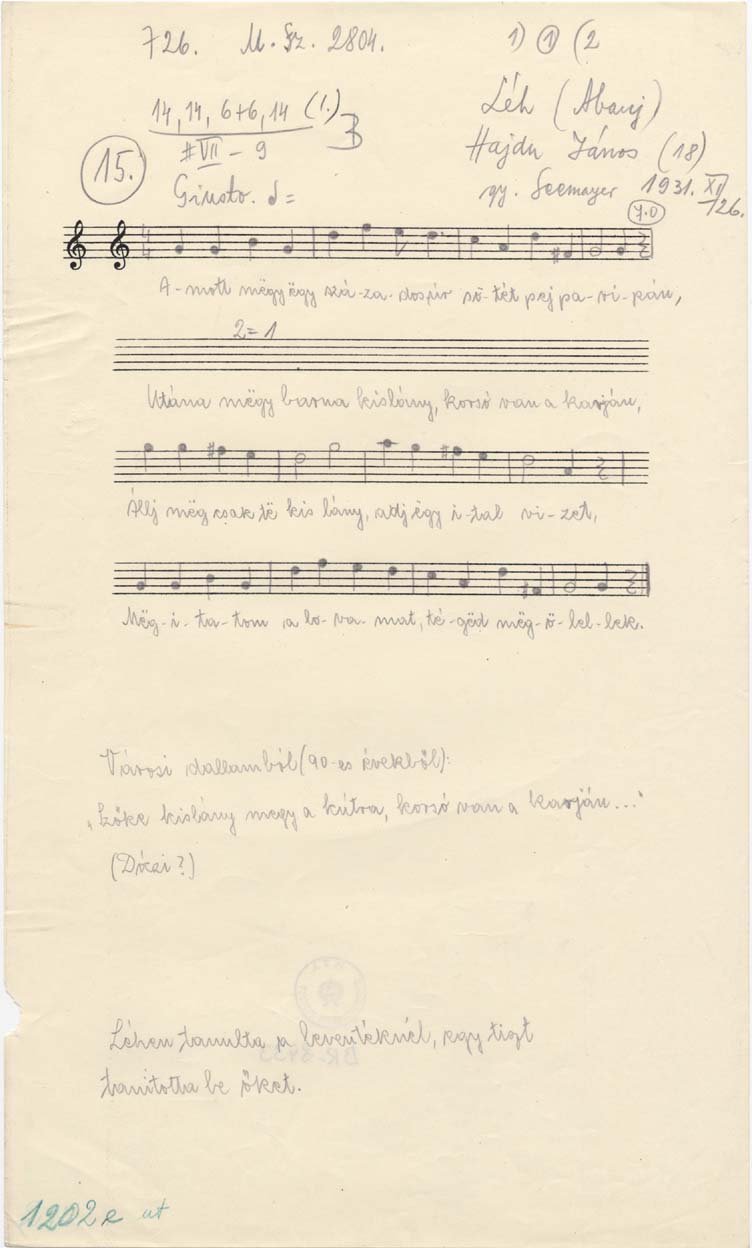 726. M. Sz. 2804. 1) ① (2
14, 14, 6+6, 14 (1.) B
#VII - 9
15.
Giusto.
Léh (Abauj)
Hajdu János (18)
gy. Seemayer 1931. XI
726.
A-mott mëgy ëgy szá-za-dospír sö-tét pej pa-ri-pán,
2=1
Utána mëgy barna kislány, korsó van a karján,
Állj mëg csak të kis lány, adj ëgy i-tal vi-zet,
Mëg-i-ta-tom a lo-va-mat, té-gëd mëg-ö-lel-lek.
Városi dallamból (90-es évekből):
„Szőke kislány megy a kútra, korsó van a karján..."
(Dóczi?)
Léhen tanulta a leventéknél, egy tiszt
tanította be őket.
1202e ut